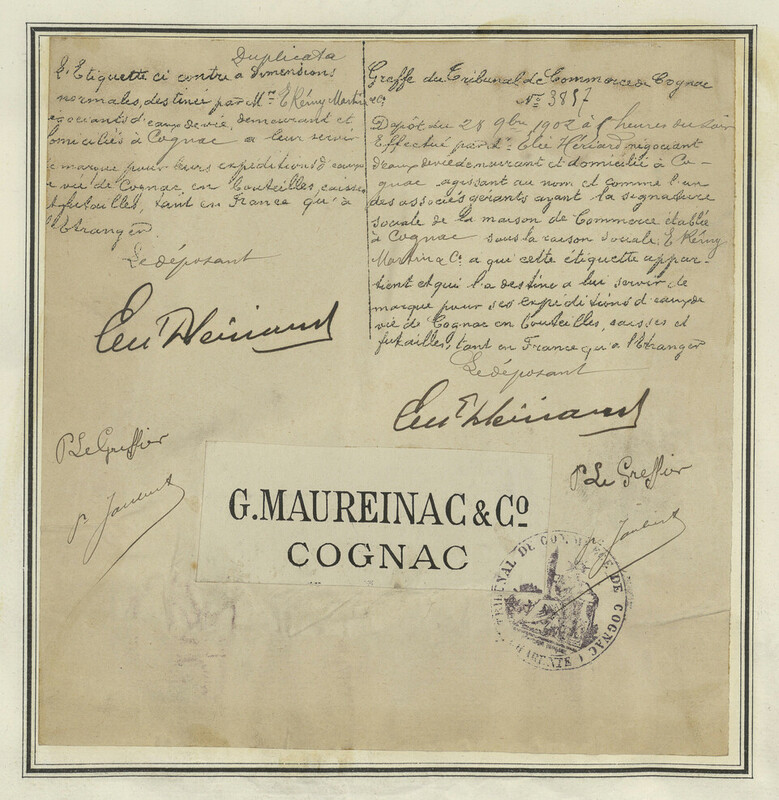 Duplicata
L'Etiquette ci contre a dimensions
normales, destinée par Mrs E Rémy Martin
& Co
négociants d'eaux de vie, demeurant et
domiciliés à Cognac a leur servir
de marque pour leurs expeditions d'eaux
de vie de Cognac, en bouteilles, caisses
et futailles, tant en France qu'à
l'Etranger
Le déposant
P Le Greffier
Greffe du Tribunal de Commerce de Cognac
No 3857
Dépôt du 28 9bre 1902 à heures du soir
Effectué par Mr Elie Hériard négociant
d'eaux de vie demeurant et domicilié à Co-
gnac, agissant au nom et comme l'un
des associés gérants ayant la signature
sociale de la maison de Commerce établie
à Cognac sous la raison sociale, E Rémy
Martin & Co a qui cette étiquette appar-
tient et qui l'a destine a lui servir de
marque pour ses expéditions d'eaux de
vie de Cognac en bouteilles, caisses et
futailles, tant en France qu'a l'Etranger
Le déposant
P Le Greffier
G. MAUREINAC & Co
COGNAC
TRIBUNAL DE COMMERCE DE COGNAC
(CHARENTE)